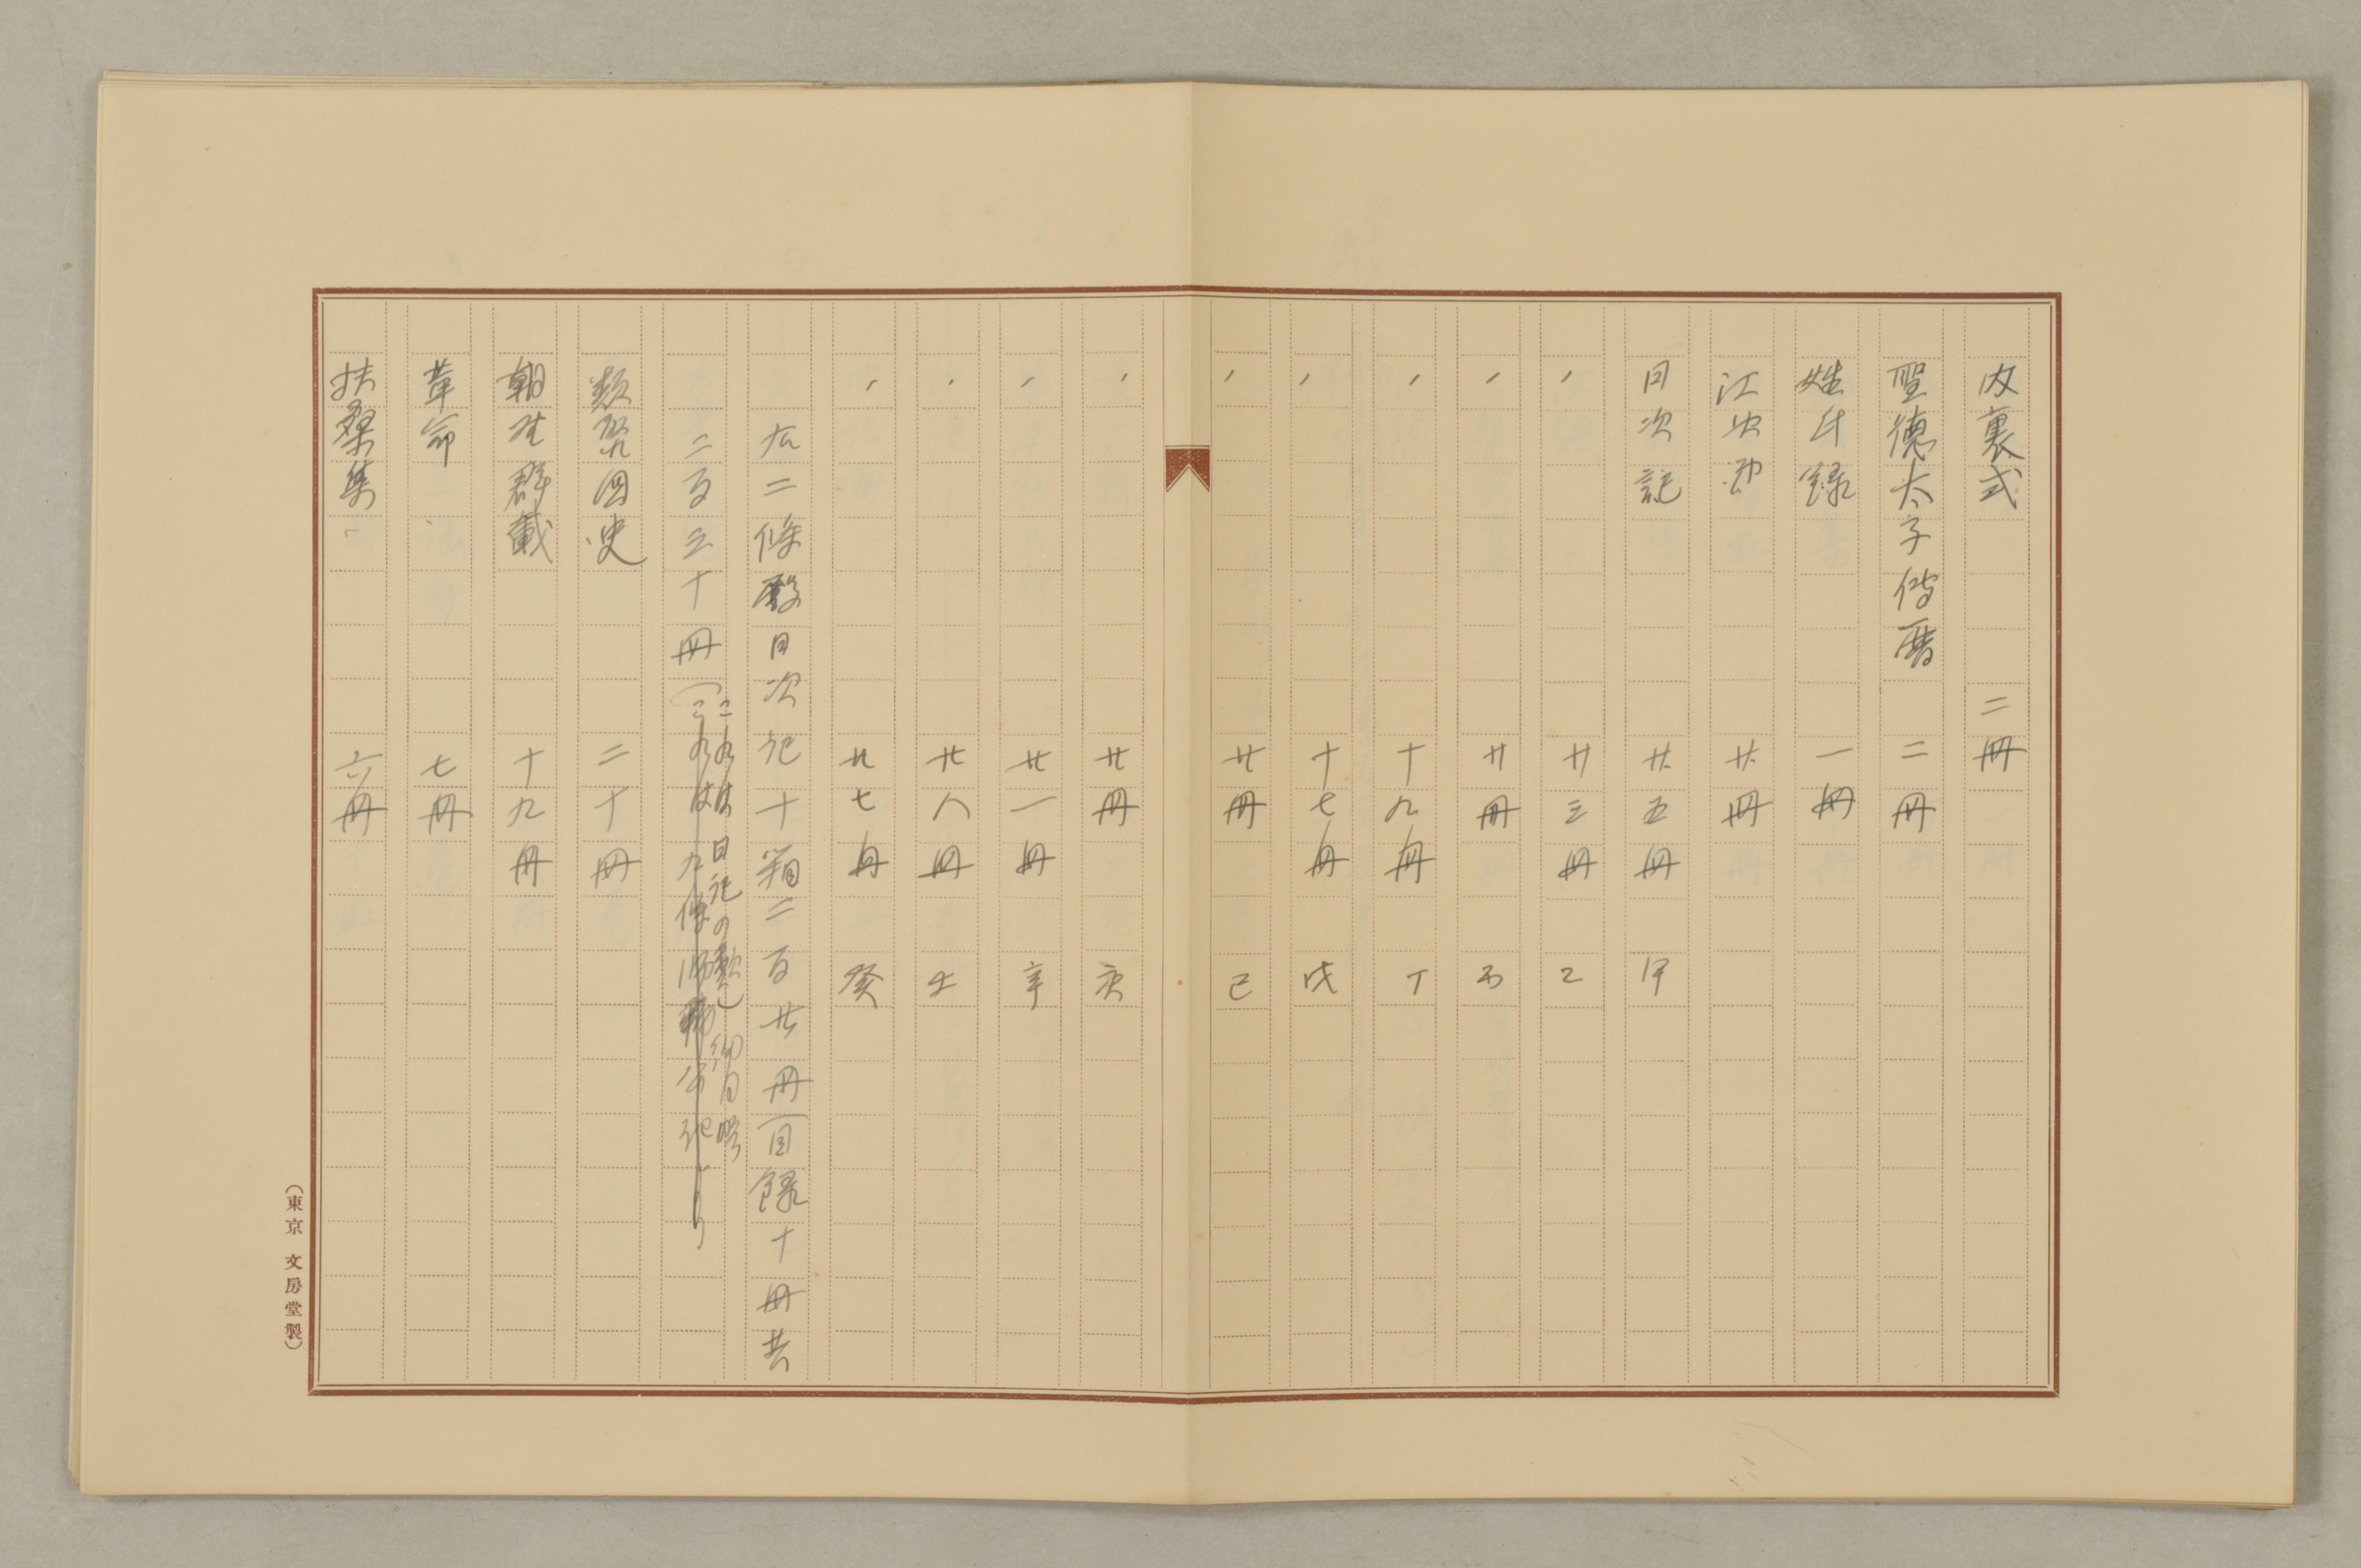 内裏式　二冊
聖徳太子傳暦　二冊
姓氏録　一冊
江次第　廿冊
日次記　廿五冊　甲
、　廿三冊　乙
、　廿冊　丙
、　十九冊　丁
、　十七冊　戊
、　廿冊　己
、　廿冊　庚
、　廿一冊　辛
、　廿八冊　壬
、　廿七冊　癸
右二條殿日次記十箱二百廿冊目録十冊共
二百三十冊（
これは日記の類
これは九條師輔公記
類聚国史　二十冊
朝野群載　十九冊
革命　七冊
扶桑集　六冊
（東京 文房堂製）